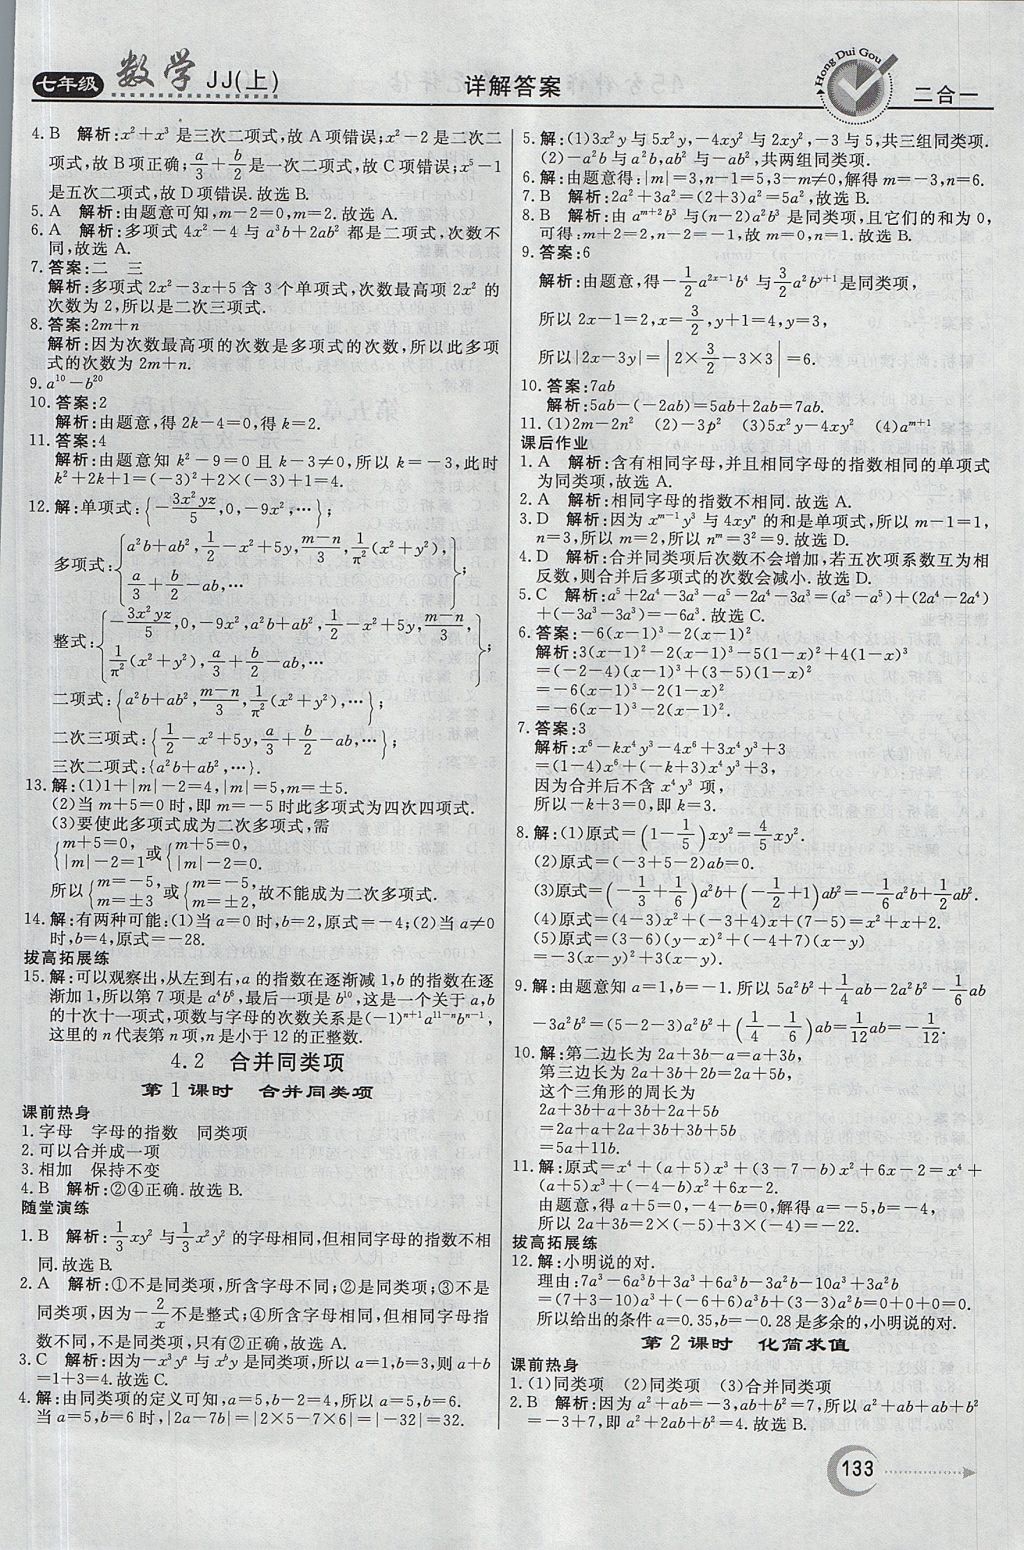 七年级 数学 JJ(上)
详解答案
Hong Dui Gou
二合一
4. B 解析:x²+x³是三次二项式,故A项错误;x²-2是二次二
项式,故B项正确;a/3+b/2是一次二项式,故C项错误;x⁵-1
是五次二项式,故D项错误.故选B.
5. A 解析:由题意可知,m-2=0,m=2.故选A.
6. A 解析:多项式4x²-4与a³b+2ab²都是二项式,次数不
同,故选A.
7. 答案:二 三
解析:多项式2x²-3x+5含3个单项式,次数最高项2x²的
次数为2,所以是二次三项式.
8. 答案:2m+n
解析:因为次数最高项的次数是多项式的次数,所以此多项
式的次数为2m+n.
9. a¹⁰-b²⁰
10. 答案:2
解析:由题意,得2k-4=0,得k=2.
11. 答案:4
解析:由题意知k²-9=0且k-3≠0,所以k=-3,此时
k²+2k+1=(-3)²+2×(-3)+1=4.
12. 解:单项式:{-3x²yz/5,0,-9x²,…};
多项式:{a²b+ab²,1/2-x²+5y,(m-n)/3,1/π²(x²+y²),
a/3+b/2-ab,…};
整式:{-3x²yz/5,0,-9x²,a²b+ab²,1/2-x²+5y,(m-n)/3,
1/π²(x²+y²),a/3+b/2-ab,…};
二项式:{a²b+ab²,(m-n)/3,1/π²(x²+y²),…};
二次三项式:{1/2-x²+5y,a/3+b/2-ab,…};
三次二项式:{a²b+ab²,…}.
13. 解:(1)1+|m|-2=4,|m|=5,m=±5.
(2)当m+5=0时,即m=-5时此多项式为四次四项式.
(3)要使此多项式成为二次多项式,需
{m+5=0,|m|-2=1或{m+5=0,|m|-2=0.
所以{m=-5,m=±3或{m=-5,m=±2,故不能成为二次多项式.
14. 解:有两种可能:(1)当a=0时,b=2,原式=-4;(2)当a≠0
时,b=4,原式=-28.
拔高拓展练
15. 解:可以观察出,从左到右,a的指数在逐渐减1,b的指数在逐
渐加1,所以第7项是a⁴b⁶,最后一项是b¹⁰,这是一个关于a,b
的十次十一项式,项数与字母的次数关系是(-1)ⁿ⁺¹a¹¹⁻ⁿbⁿ⁻¹,
这里的n代表第n项,n是小于12的正整数.
4.2 合并同类项
第1课时 合并同类项
课前热身
1. 字母 字母的指数 同类项
2. 可以合并成一项
3. 相加 保持不变
4. B 解析:②④正确.故选B.
随堂演练
1. B 解析:1/3xy²与1/3x²y²的字母相同,但相同字母的指数不相
同.故选B.
2. A 解析:①不是同类项,所含字母不同;②是同类项;③不是
同类项,因为-2/x不是整式;④所含字母相同,但相同字母指
数不同,不是同类项,只有②正确,故选A.
3. C 解析:因为-x³yᵃ与xᵇy是同类项,所以a=1,b=3,则a+
b=1+3=4.故选C.
4. 解:由同类项的定义可知,a=5,b-2=4,所以a=5,b=6.
当a=5,b=6时,|2a-7b|=|2×5-7×6|=|-32|=32.
5. 解:(1)3x²y与5x²y,-4xy²与2xy²,-3与5,共三组同类项.
(2)-a²b与a²b,ab²与-ab²,共两组同类项.
6. 解:由题意得:|m|=3,n-1=5,3-m≠0,解得m=-3,n=6.
7. B 解析:2a²+3a²=(2+3)a²=5a²,故选B.
8. B 解析:由aᵐ⁺²b³与(n-2)a²b³是同类项,且它们的和为0,
可得:m+2=2,n-2=-1,故m=0,n=1.故选B.
9. 答案:6
解析:由题意,得-1/2a²ˣ⁻¹b⁴与1/5a²bʸ⁺¹是同类项,
所以2x-1=2,x=3/2,y+1=4,y=3,
所以|2x-3y|=|2×3/2-3×3|=6.
10. 答案:7ab
解析:5ab-(-2ab)=5ab+2ab=7ab.
11. (1)2m-2n² (2)-3p² (3)5x²y-4xy² (4)aᵐ⁺¹
课后作业
1. A 解析:含有相同字母,并且相同字母的指数相同的单项式
为同类项,故选A.
2. A 解析:相同字母的指数不相同.故选A.
3. D 解析:因为xᵐ⁻¹y³与4xyⁿ的和是单项式,所以m-1=1,
n=3,所以m=2,所以nᵐ=3²=9.故选D.
4. D 解析:合并同类项后次数不会增加,若五次项系数互为相
反数,则合并后多项式的次数会减小.故选D.
5. C 解析:a⁵+2a⁴-3a³-a⁵-2a⁴-3a³=(a⁵-a⁵)+(2a⁴-2a⁴)
+(-3a³-3a³)=-6a³.故选C.
6. 答案:-6(x-1)³-2(x-1)²
解析:3(x-1)²-2(x-1)³-5(1-x)²+4(1-x)³
=(-2-4)(x-1)³+(3-5)(1-x)²
=-6(x-1)³-2(1-x)²
=-6(x-1)³-2(x-1)².
7. 答案:3
解析:x⁶-kx⁴y³-4x⁶+3x⁴y³+3
=(1-4)x⁶+(-k+3)x⁴y³+3,
因为合并后不含x⁴y³项,
所以-k+3=0,即k=3.
8. 解:(1)原式=(1-1/5)xy²=4/5xy².
(2)原式=(-3+5-2)ab=0.
(3)原式=(-1/3+1/6)a²b+(-1/2+1)ab²=-1/6a²b+1/2ab².
(4)原式=(4-3)x²+(-3+4)x+(7-5)=x²+x+2.
(5)原式=(3-6)(y-x)²+(-4+7)(x-y)
=-3(y-x)²+3(x-y).
9. 解:由题意知a=1,b=-1.所以5a²b²+1/4ab-2a²b²-1/6ab
-3a²b²=(5-2-3)a²b²+(1/4-1/6)ab=1/12ab=-1/12.
10. 解:第二边长为2a+3b-a=a+3b,
第三边长为2a+3b+2b=2a+5b,
这个三角形的周长为
2a+3b+a+3b+2a+5b
=2a+a+2a+3b+3b+5b
=5a+11b.
11. 解:原式=x⁴+(a+5)x³+(3-7-b)x²+6x-2=x⁴+
(a+5)x³+(-4-b)x²+6x-2.
由题意,得a+5=0,-4-b=0,解得a=-5,b=-4,
所以2a+3b=2×(-5)+3×(-4)=-22.
拔高拓展练
12. 解:小明说的对.
理由:7a³-6a³b+3a³+6a³b-3a²b-10a³+3a²b
=(7+3-10)a³+(-6+6)a³b+(3-3)a²b=0+0+0=0.
所以给出的条件a=0.35,b=-0.28是多余的,小明说的对.
第2课时 化简求值
课前热身
1. (1)同类项 (2)同类项 (3)合并同类项
2. B 解析:因为a²+ab=-3,ab+b²=7,所以a²+ab+ab+b²
=-3+7,即a²+2ab+b²=4.故选B.
133